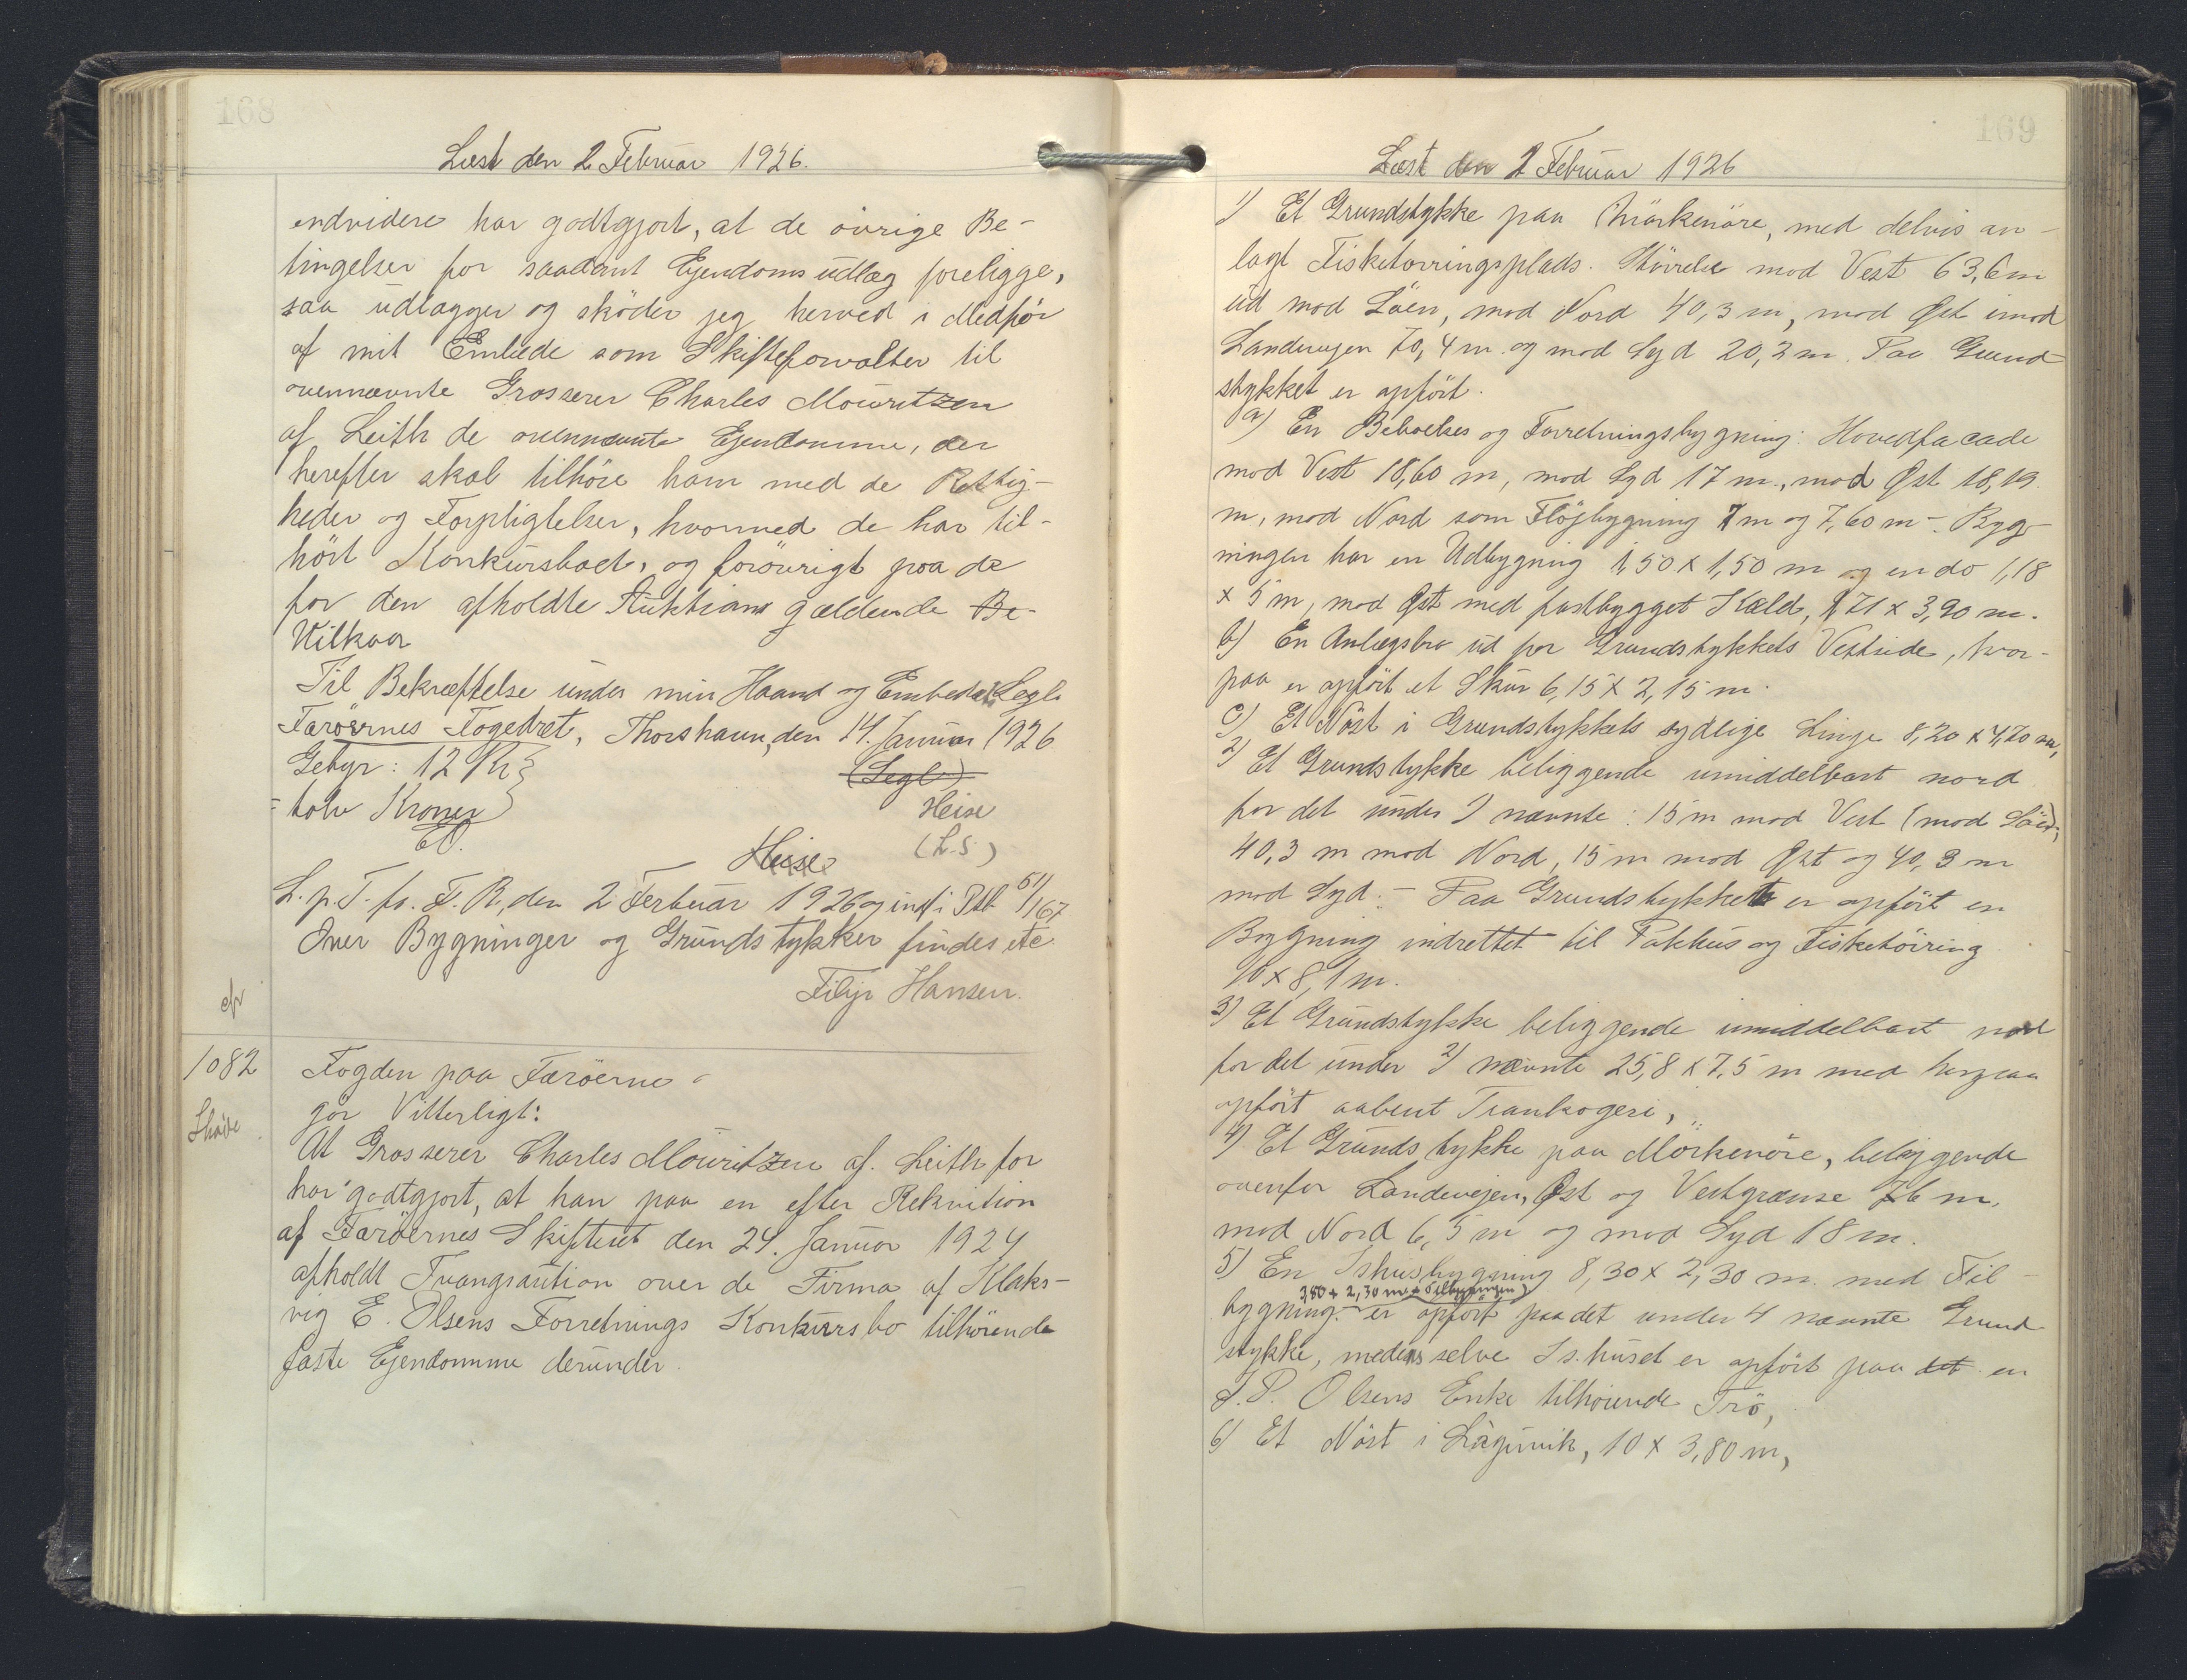 168
Læst den 2 Februar 1926.
endvidere har godtgjort, at de övrige Be-
tingelser for saadant Ejendomsudlæg foreligge,
saa udlægger og sköder jeg herved i Medför
af mit Embede som Skifteforvalter til
ovennævnte Grosserer Charles Mouritzen
af Leith de ovennævnte Ejendomme, der
herefter skal tilhöre ham med de Rettig-
heder og Forpligtelser, hvormed de har til-
hört Konkursboet, og forövrigt paa de
for den afholdte Auktions gældende Be-
Vilkaar
Til Bekræftelse under min Haand og Embedets Segl.
Færöernes Fogedret, Thorshavn, den 14. Januar 1926
Gebyr: 12 Kr
(Segl)
= tolv Kroner
Heise
(L.S)
Heise
L. p. T. fr. F. R., den 2 Ferbuar 1926 og indf i Ptb 51/167
Over Bygninger og Grundstykker findes etc
Filip Hansen.
1082
Sköde
Fogden paa Færöerne
gör Vitterligt:
At Grosserer Charles Mouritzen af Leith for
har godtgjort, at han paa en efter Rekvition
af Færöernes Skifteret den 24. Januar 1924
afholdt Tvangsaution over de Firma af Klaks-
vig E. Olsens Forretnings Konkursbo tilhörende
faste Ejendomme derunder.
169
Læst den 2 Februar 1926
1) Et Grundstykke paa Mörkenöre, med delvis an-
lagt Fisketörringsplads. Störrelse mod Vest 63,6 m
ud mod Söen, mod Nord 40,3 m, mod Øst imod
Landevejen 70,4 m. og mod Syd 20,3 m. Paa Grund-
stykket er opfört.
a) En Beboelses og Forretningsbygning: Hovedfacade
mod Vest 18,60 m, mod Syd 17 m., mod Øst 18,19.
m, mod Nord som Flöjbygning 7 m og 7,60 m -. Byg-
ningen har en Udbygning 1,50 x 1,50 m og en do 1,18
x 5 m, mod Øst med fastbygget Kæld, 1,71 x 3,90 m.
b) En Anlægsbro ud for Grundstykkets Vestside, hvor-
paa er opfört et Skur 6,15 x 2,15 m.
c) Et Nöst i Grundstykkets sydlige Linge 8,20 x 4,70 m,
2) Et Grundstykke beliggende umiddelbart nord
for det under 1 nævnte: 15 m mod Vest (mod Söen),
40,3 m mod Nord, 15 m mod Øst og 40,3 m
mod Syd. - Paa Grundstykket er opfört en
Bygning indrettet til Pakhus og Fisketörring
10 x 8,1 m.
3) Et Grundstykke beliggende umiddelbart nord
for det under 2) nævnte 25,8 x 7,5 m med herpaa
opfört aabent Trankogeri,
4) Et Grundstykke paa Morkenöre, beliggende
ovenfor Landevejen, Øst og Vestgrænse 76 m,
mod Nord 6,5 m og mod Syd 18 m.
5) En Ishusbygning 8,30 x 2,30 m. med Til-
3,80 x 2,30 m. Tilbygningen
bygning. er opfört paa det under 4 nævnte Grund-
stykke, medens selve Is.huset er opfört paa det en
J. P. Olsens Enke tilhörende Trö,
6) Et Nöst i Lágúvik, 10 x 3,80 m,